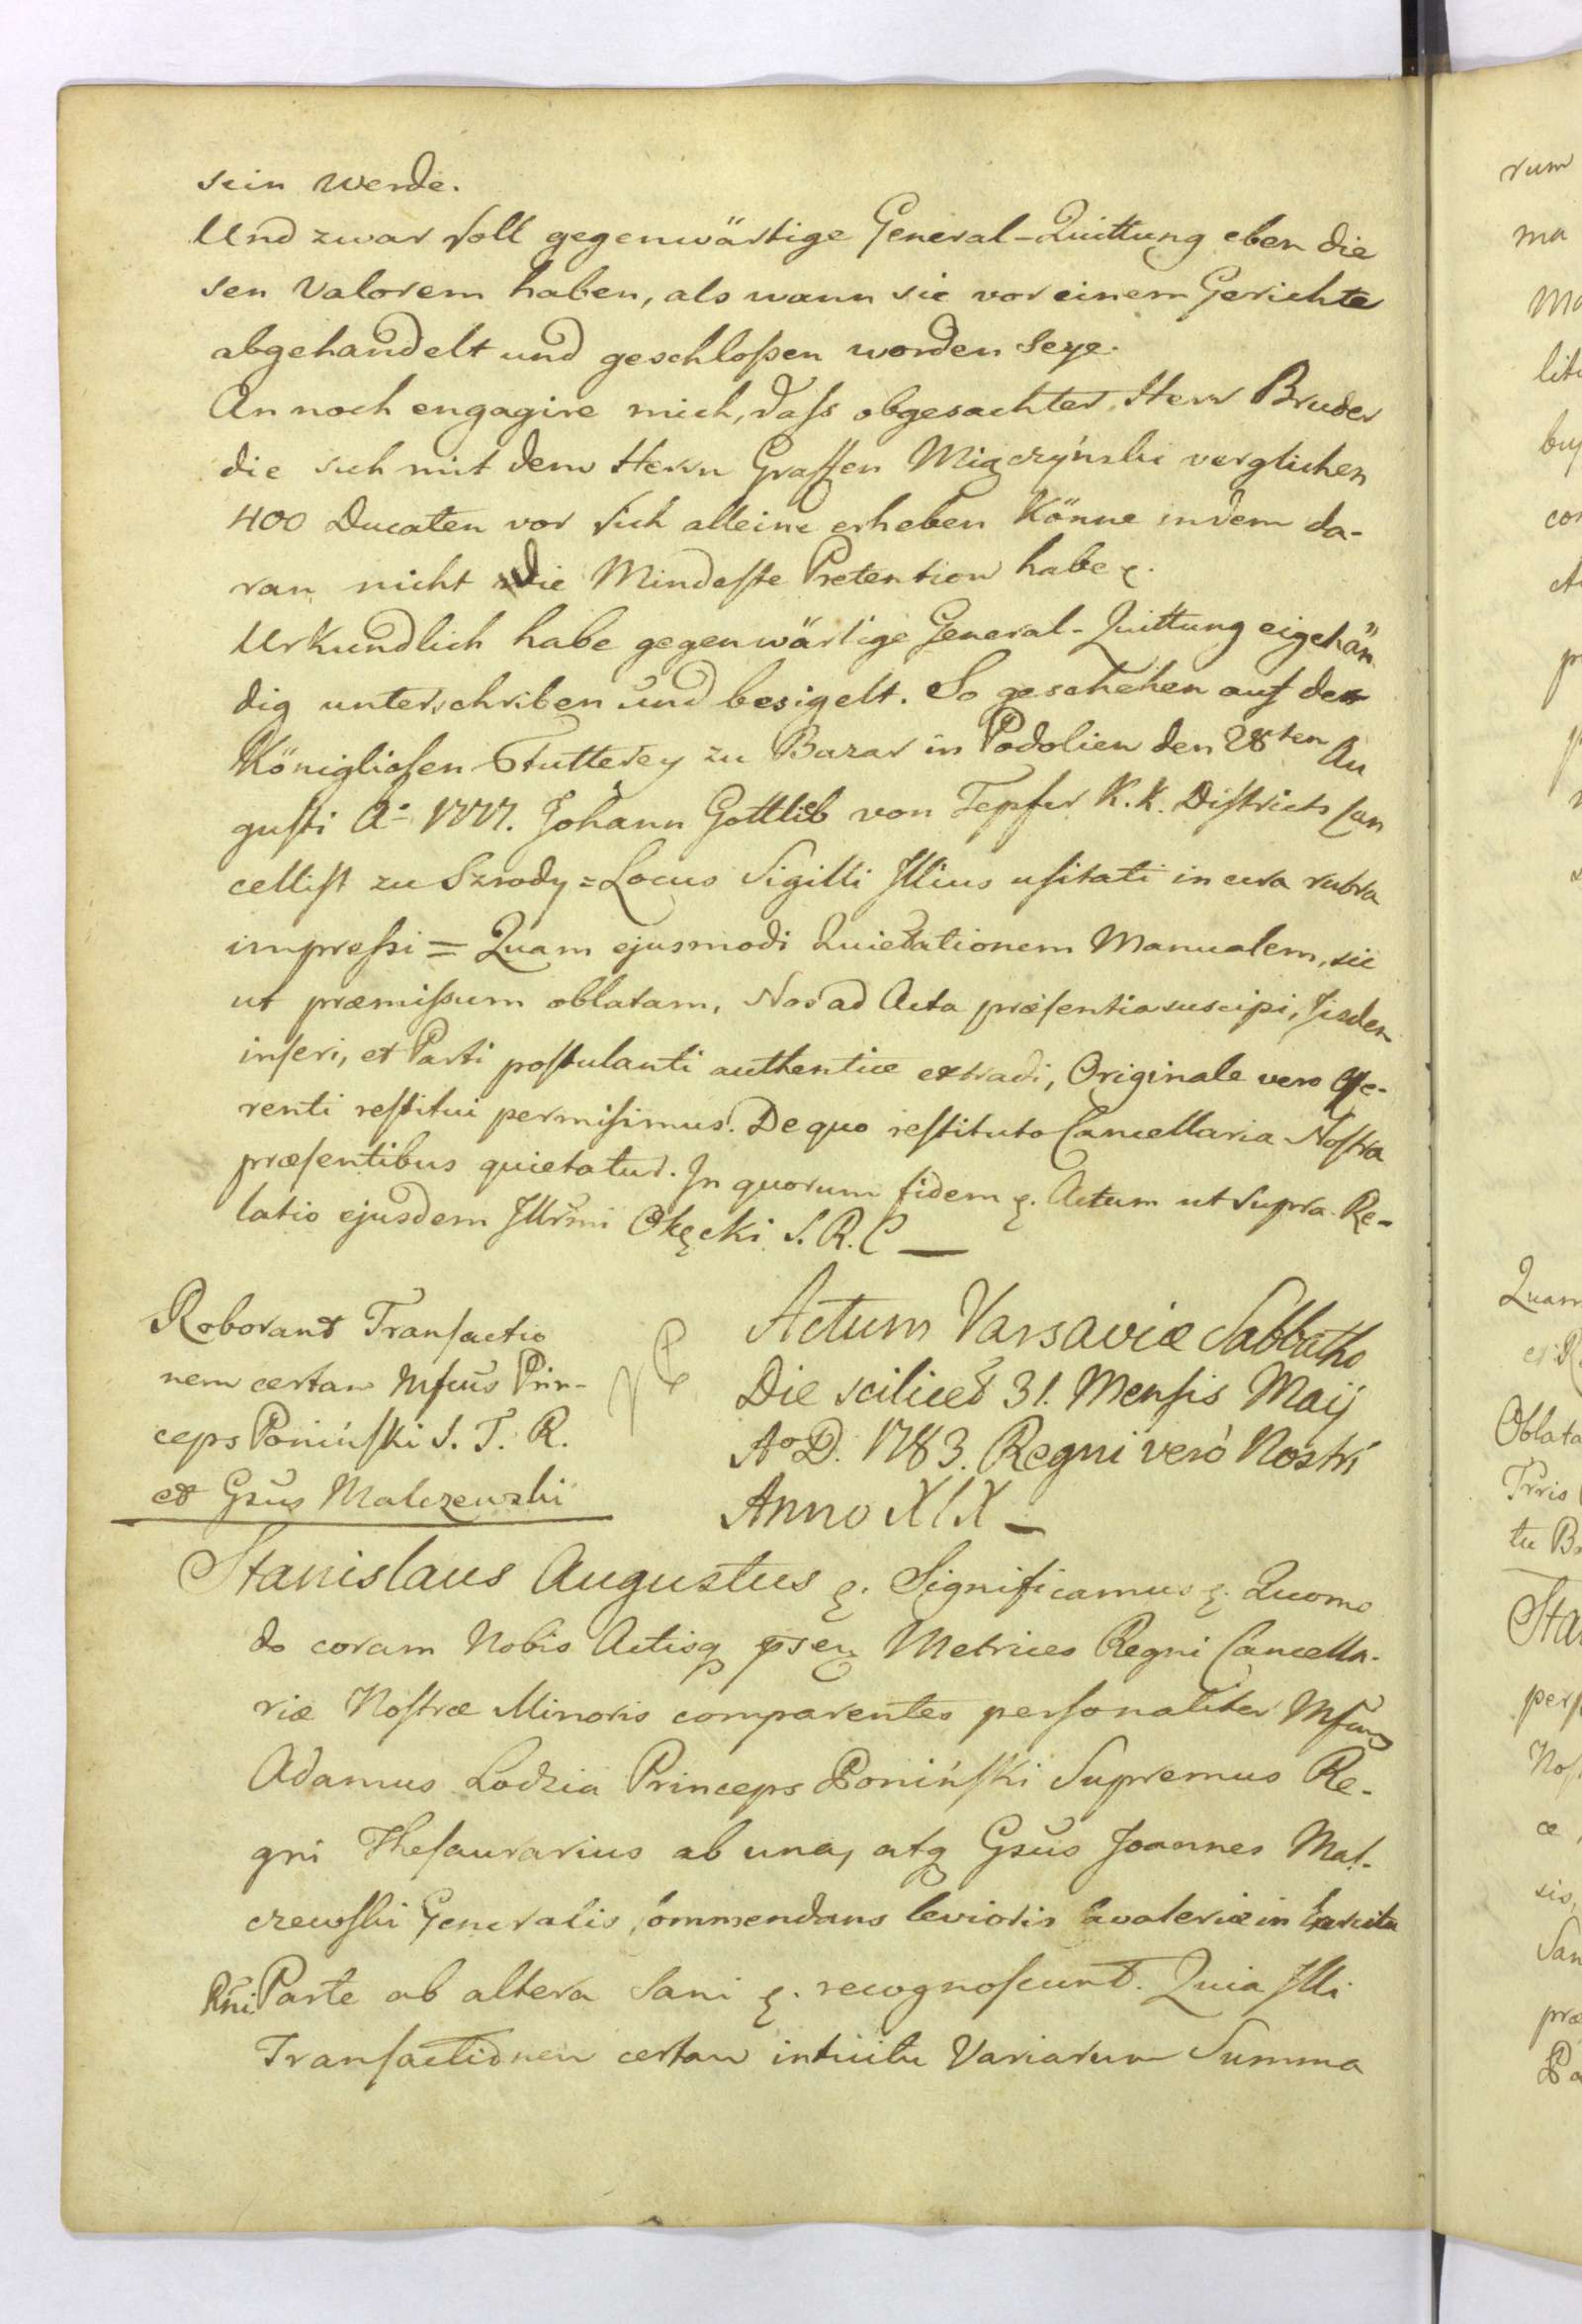 sein werde.
Und zwar soll gegenwärtige General-Quittung eben die
sen Valorem haben, als wann sie vor einem Gerichte
abgehandelt und geschloßen worden seye.
An noch engagire mich, dass obgesachter Herr Bruder
die sich mit dem Herrn Graffen Miączyński verglichen
400 Ducaten vor sich alleine erheben Könne indem da-
ran nicht die Mindeste Pretention habe
Urkundlich habe gegenwärtige General-Quittung eigehän
dig unterschriben und besigelt. So geschehen auf der
Königliosen Stutterey zu Bazar in Podolien den 28ten Au
gusti Ao 1777. Johann Gottlieb von Tepfer K.K. Districts Can
cellist zu Szrody = Locus Sigilli Illius usitati in cera rubra
impressi = Quam ejusmodi Quietationem Manualem, sic
ut præmissum oblatam, Nos ad Acta præsentia suscipi, Iisdem
inseri, et Parti postulanti authentice extradi, Originale vero Offe-
renti restitui permisimus. De quo restituto Cancellaria Nostra
præsentibus quietatur. In quorum fidem Actum ut supra. Re-
latio ejusdem Illrmi Okęcki S. R. C —
Roborant Transactio
nem certam Mfcus Prin-
ceps Poniński S. T. R.
et Gsus Malczewski
Actum Varsaviæ Sabbatho
Die scilicet 31. Mensis Maij
Ao D. 1783. Regni verò Nostri
Anno XIX —
Stanislaus Augustus Significamus Quomo
do coram Nobis Actisq Metrices Regni Cancella-
riæ Nostræ Minoris comparentes personaliter Mfcus
Adamus Lodzia Princeps Poniński Supremus Re-
gni Thesaurarius ab una, atq Gsus Joannes Mal-
czewski Generalis Commendans levioris Cavaleriæ in Exercitu
Rni Parte ab altera Sani recognoscunt. Quia Illi
Transactionem certam intuitu Variarum Summa
rum
ma
lit
Quam
Oblata
tu
Sta
pers
Nos
æ
sis,
San
præ